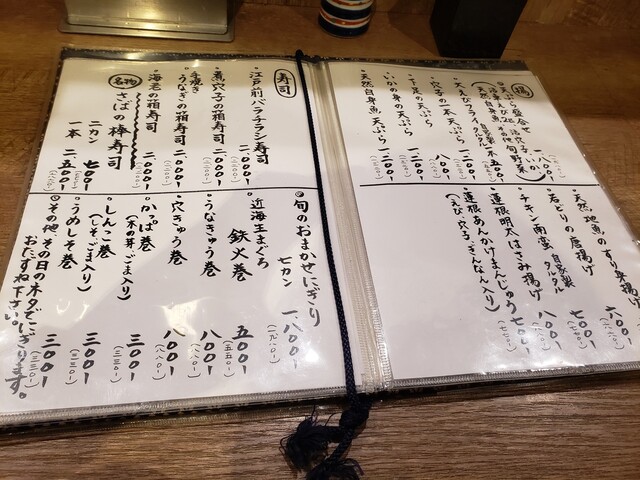 揚
天ぷら盛合せ
一、八〇〇
大えびフライ 自家製タルタル
一、五〇〇
穴子の一本天ぷら
一、八〇〇
げそ足の天ぷら
一、二〇〇
いかの身の天ぷら
天然白身魚天ぷら
一、二〇〇
天然地魚のすり身揚げ
六〇〇
若どりの唐揚げ
七〇〇
チキン南蛮 自家製タルタル
八〇〇
蓮根明太はさみ揚げ
七〇〇
蓮根あんかけまんじゅう
(えび、穴子、ぎんなん入り)
寿司
江戸前バラチラシ寿司
二、〇〇〇
煮穴子の箱寿司
二、〇〇〇
手焼き
うなぎの箱寿司
二、〇〇〇
海老の箱寿司
二、〇〇〇
名物
さばの棒寿司
二カン 七〇〇
一本 二、五〇〇
旬のおまかせにぎり
七カン
一、八〇〇
近海生まぐろ
鉄火巻
五〇〇
(五五〇)
うなきゅう巻
八〇〇
(八八〇)
穴きゅう巻
八〇〇
(八八〇)
かっぱ巻
(木の芽、ごま入り)
三〇〇
(三三〇)
しんこ巻
(しそ、ごま入り)
三〇〇
(三三〇)
うめしそ巻
三〇〇
(三三〇)
その他、その日の木タでにぎります。
おたずね下さい。